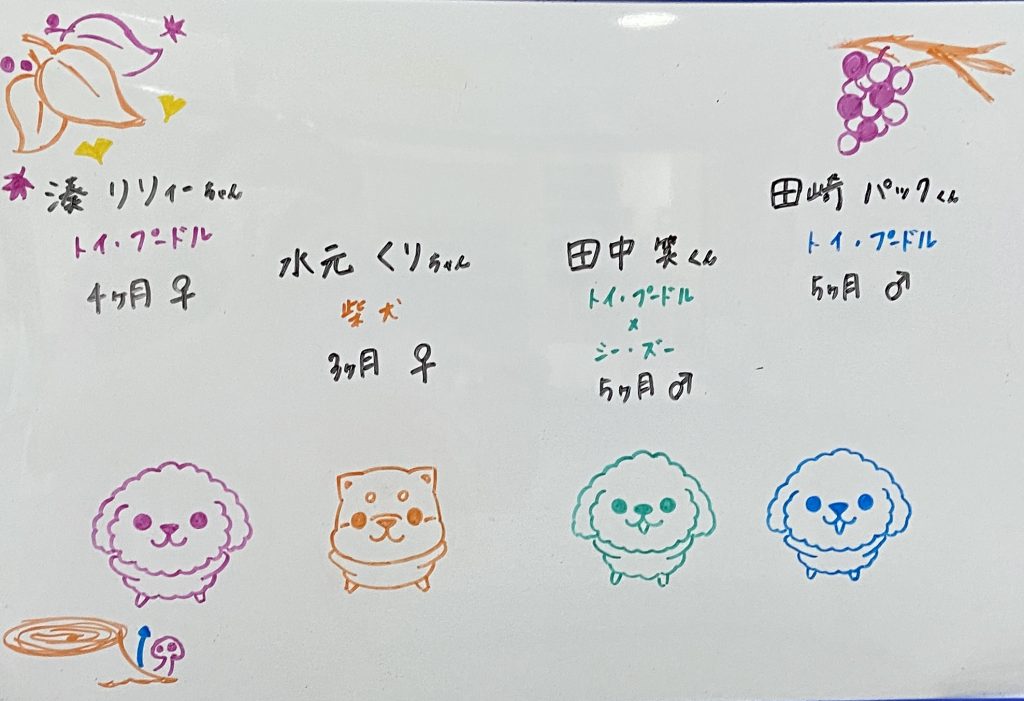 湊 リリィーちゃん
トイ・プードル
4ヶ月 ♀
水元 くりちゃん
柴犬
3ヶ月 ♀
田中 笑くん
トイ・プードル
×
シー・ズー
5ヶ月 ♂
田崎 パックくん
トイ・プードル
5ヶ月 ♂